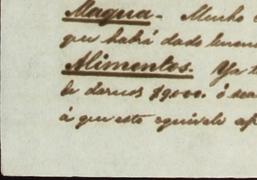 Magua. Mucho
que habrá dado
Alimentos. Ya
de darnos $9.000. ó sea
á que este equivale